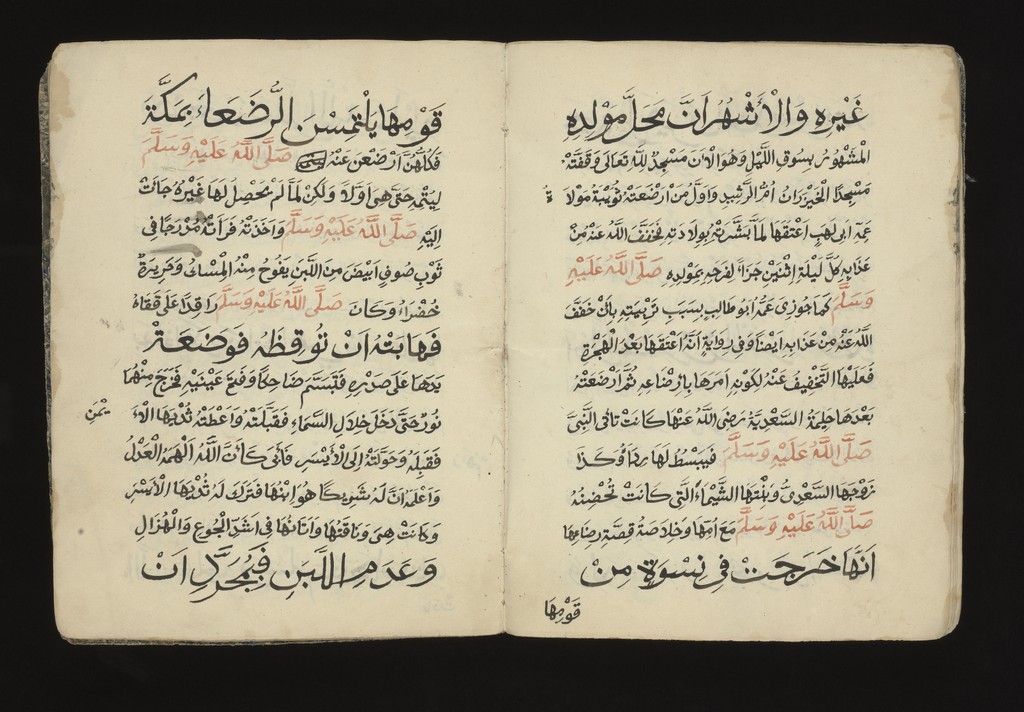 غَيْرِهِ وَالْأَشْهُرُ اَنَّ مَحَلَّ مَوْلِدِهِ
الْمَشْهُورُ بِسُوقِ اللَّيْلِ وَهُوَ الْاٰنَ مَسْجِدٌ لِلّٰهِ تَعَالٰى وَقَفَتْهُ
مَسْجِدًا الْخَيْزُرَانُ اُمُّ الرَّشِيدِ وَاَوَّلُ مَنْ اَرْضَعَتْهُ ثُوَيْبَةُ مَوْلَاةُ
عَمِّهِ اَبِى لَهَبٍ اَعْتَقَهَا لَمَّا بَشَّرَتْهُ بِوِلَادَتِهِ فَخَفَّفَ اللّٰهُ عَنْهُ مِنْ
عَذَابِهِ كُلَّ لَيْلَةِ اِثْنَيْنِ جَزَاءً لِفَرَحِهِ بِمَوْلِدِهِ صَلَّى اللّٰهُ عَلَيْهِ
وَسَلَّمَ كَمَا جُوزِىَ عَمُّهُ اَبُو طَالِبٍ بِسَبَبِ تَرْبِيَتِهِ بِاَنْ خَفَّفَ
اللّٰهُ عَنْهُ مِنْ عَذَابِهِ اَيْضًا وَفِى رِوَايَةٍ اَنَّهُ اَعْتَقَهَا بَعْدَ الْهِجْرَةِ
فَعَلَيْهَا التَّخْفِيفُ عَنْهُ لِكَوْنِهِ اَمَرَهَا بِاِرْضَاعِهِ ثُمَّ اَرْضَعَتْهُ
بَعْدَهَا حَلِيمَةُ السَّعْدِيَةُ رَضِىَ اللّٰهُ عَنْهَا كَانَتْ تَاْتِى النَّبِىَّ
صَلَّى اللّٰهُ عَلَيْهِ وَسَلَّمَ فَيَبْسُطُ لَهَا رِدَاءَهُ وَكَذَا
زَوْجُهَا السَّعْدِىُّ وَبِنْتُهَا الشَّيْمَاءُ الَّتِى كَانَتْ تَحْضِنُهُ
صَلَّى اللّٰهُ عَلَيْهِ وَسَلَّمَ مَعَ اُمِّهَا وَخُلَاصَةُ قِصَّةِ رِضَاعِهَا
اَنَّهَا خَرَجَتْ فِى نِسْوَةٍ مِنْ
قَوْمِهَا
قَوْمِهَا يَلْتَمِسْنَ الرُّضَعَاءَ بِمَكَّةَ
فَكُلُّهُنَّ اَرْضَعْنَ عَنْهُ صَلَّى اللّٰهُ عَلَيْهِ وَسَلَّمَ
لِيُتْمِهِ حَتَّى هِىَ اَوَّلًا وَلٰكِنْ لَمَّا لَمْ يَحْصُلْ لَهَا غَيْرُهُ جَائَتْ
اِلَيْهِ صَلَّى اللّٰهُ عَلَيْهِ وَسَلَّمَ وَاَخَذَتْهُ فَرَاَتْهُ مُدْرَجًا فِى
ثَوْبِ صُوفٍ اَبْيَضَ مِنَ اللَّبَنِ يَفُوحُ مِنْهُ الْمِسْكُ وَحَرِيرَةٌ
خَضْرَاءُ وَكَانَ صَلَّى اللّٰهُ عَلَيْهِ وَسَلَّمَ رَاقِدًا عَلَى قَفَاهُ
فَهَابَتْهُ اَنْ تُوقِظَهُ فَوَضَعَتْ
يَدَهَا عَلَى صَدْرِهِ فَتَبَسَّمَ ضَاحِكًا وَفَتَحَ عَيْنَيْهِ فَخَرَجَ مِنْهُمَا
نُورٌ حَتَّى دَخَلَ خِلَالَ السَّمَاءِ فَقَبَّلَتْهُ وَاَعْطَتْهُ ثَدْيَهَا الْاَ
يْمَنَ
فَقَبِلَهُ وَحَوَّلَتْهُ اِلَى الْأَيْسَرِ فَاَبَى كَاَنَّ اللّٰهَ اَلْهَمَهُ الْعَدْلَ
وَاَعْلَمَهُ اَنَّ لَهُ شَرِيكًا هُوَ اِبْنُهَا فَتَرَكَ لَهُ ثَدْيَهَا الْاَيْسَرَ
وَكَانَتْ هِىَ وَنَاقَتُهَا وَاَتَانُهَا فِى اَشَدِّ الْجُوعِ وَالْهُزَالِ
وَعَدَمِ اللَّبَنِ فَبِمُجَرَّدِ اَنْ